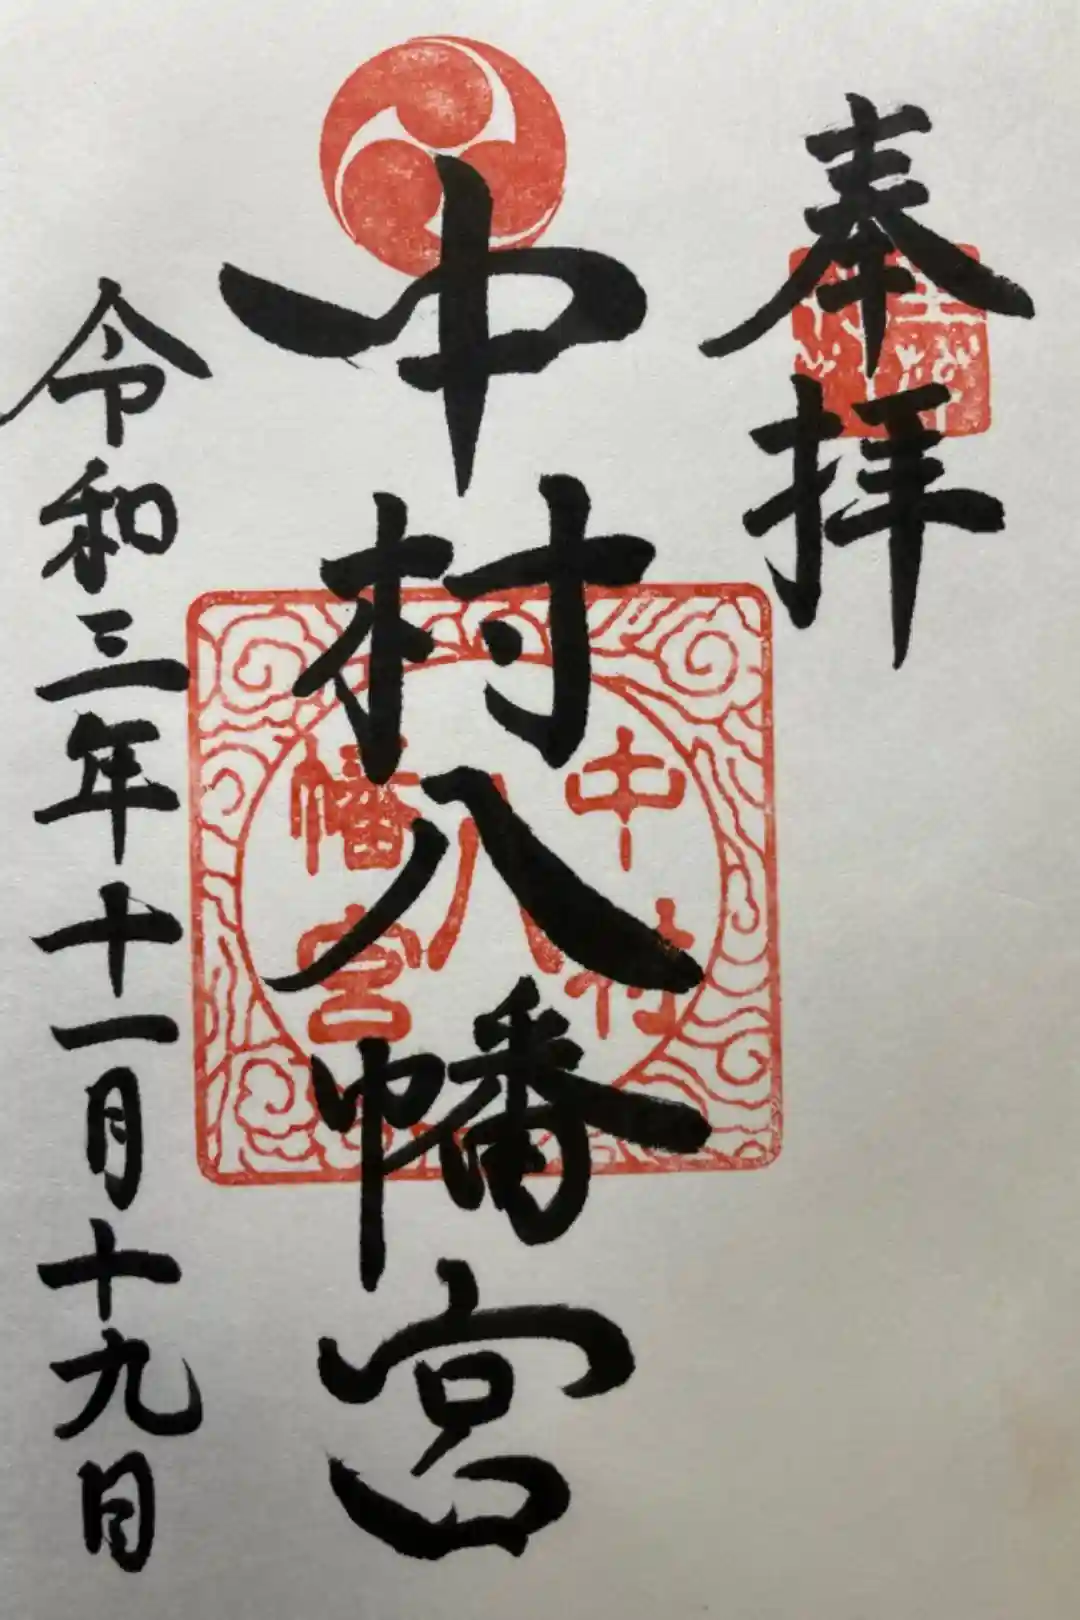 奉拝
中村八幡宮
中村
八
幡宮
令和三年十一月十九日